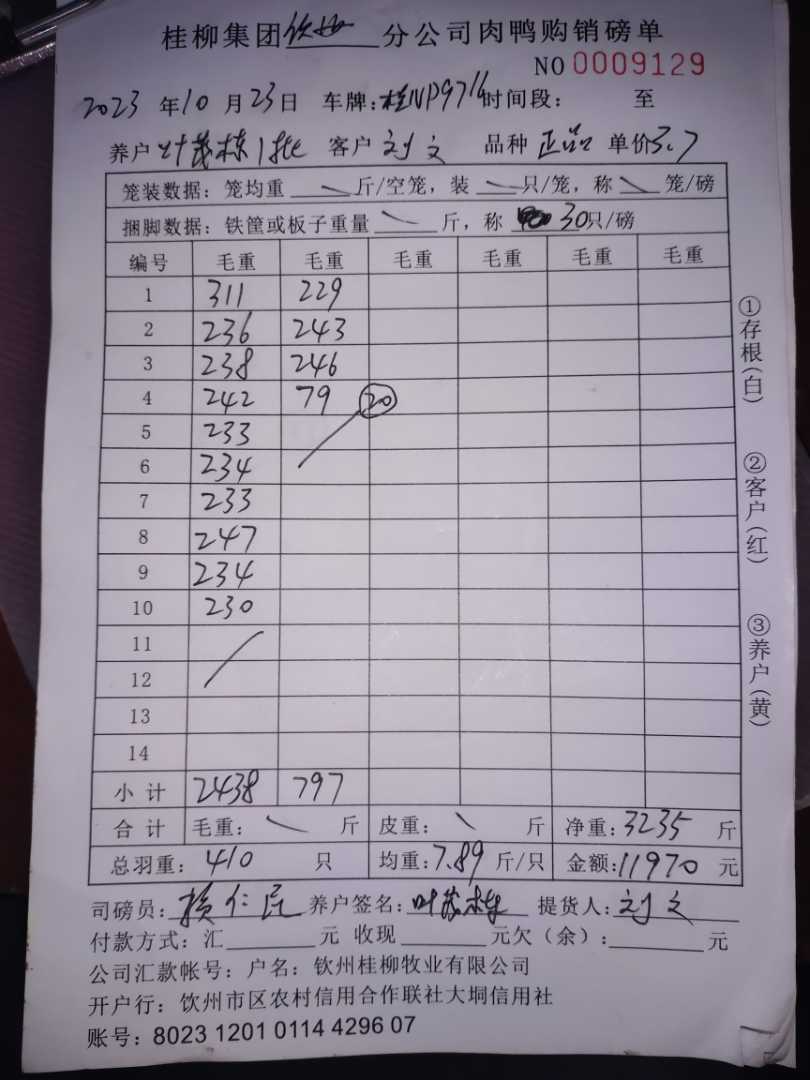 桂柳集团钦州分公司肉鸭购销磅单
NO 0009129
2023年10月23日 车牌:桂NP9716 时间段: 至
养户 叶茂栋1批 客户 刘文 品种 正品 单价3.7
笼装数据:笼均重 斤/空笼,装 只/笼,称 笼/磅
捆脚数据:铁筐或板子重量 斤,称 30只/磅
编号 毛重 毛重 毛重 毛重 毛重 毛重
1 311 229
2 236 243
3 238 246
4 242 79 20
5 233
6 234
7 233
8 247
9 234
10 230
11
12
13
14
小计 2438 797
合计 毛重: 斤 皮重: 斤 净重:3235 斤
总羽重:410 只 均重:7.89 斤/只 金额:11970 元
司磅员: 养户签名:叶茂栋 提货人:刘文
付款方式:汇 元 收现 元欠(余): 元
公司汇款帐号:户名:钦州桂柳牧业有限公司
开户行:钦州市区农村信用合作联社大垌信用社
账号:8023 1201 0114 4296 07
①存根(白)
②客户(红)
③养户(黄)